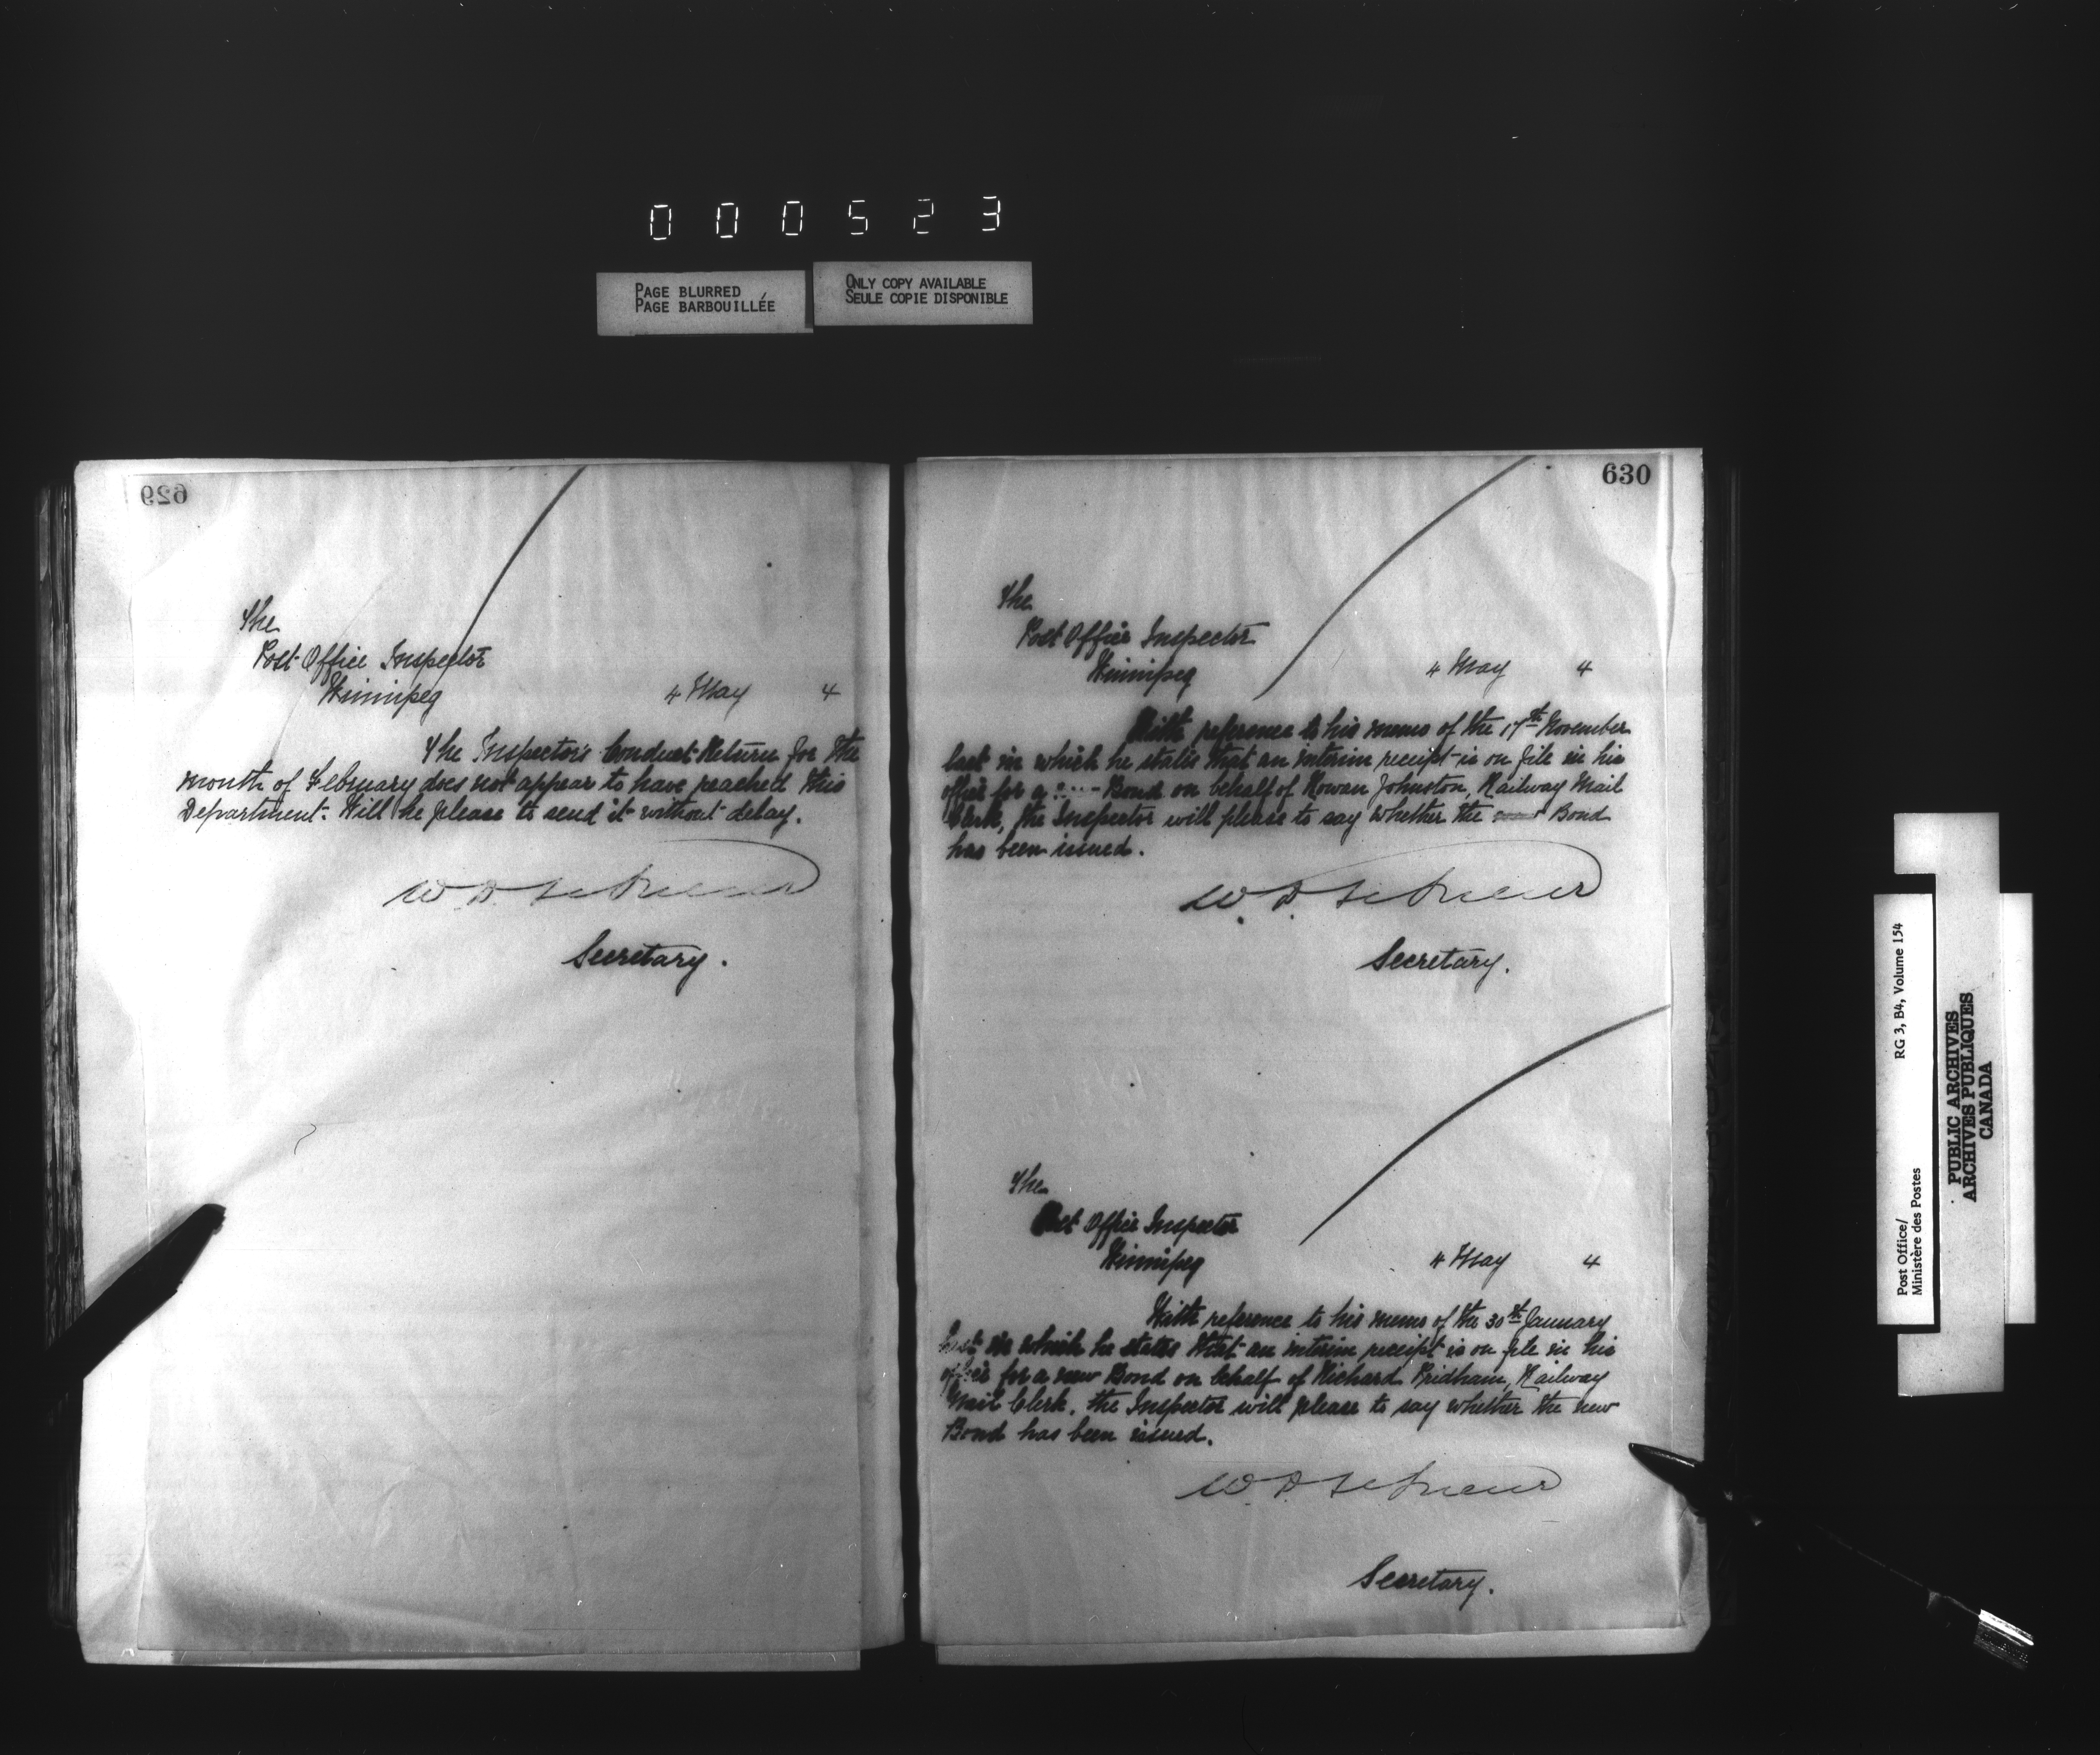 000523
PAGE BLURRED
PAGE BARBOUILLÉE
ONLY COPY AVAILABLE
SEULE COPIE DISPONIBLE
629
The
Post Office Inspector
Winnipeg
4 May 4
The Inspector's Conduct Return for the
month of February does not appear to have reached this
Department. Will he please to send it without delay.
W. D.
Secretary.
630
The
Post Office Inspector
Winnipeg
4 May 4
With reference to his memo of the 17th November
last in which he states that an interim receipt is on file in his
office for a Bond on behalf of Rowan Johnston, Railway Mail
Clerk, the Inspector will please to say whether the Bond
has been issued.
W. D.
Secretary.
The
Post Office Inspector
Winnipeg
4 May 4
With reference to his memo of the 30th January
last in which he states that an interim receipt is on file in his
office for a new Bond on behalf of Richard Pridham, Railway
Mail Clerk, the Inspector will please to say whether the new
Bond has been issued.
W. D.
Secretary.
Post Office/
Ministère des Postes
RG 3, B4, Volume 154
PUBLIC ARCHIVES
ARCHIVES PUBLIQUES
CANADA